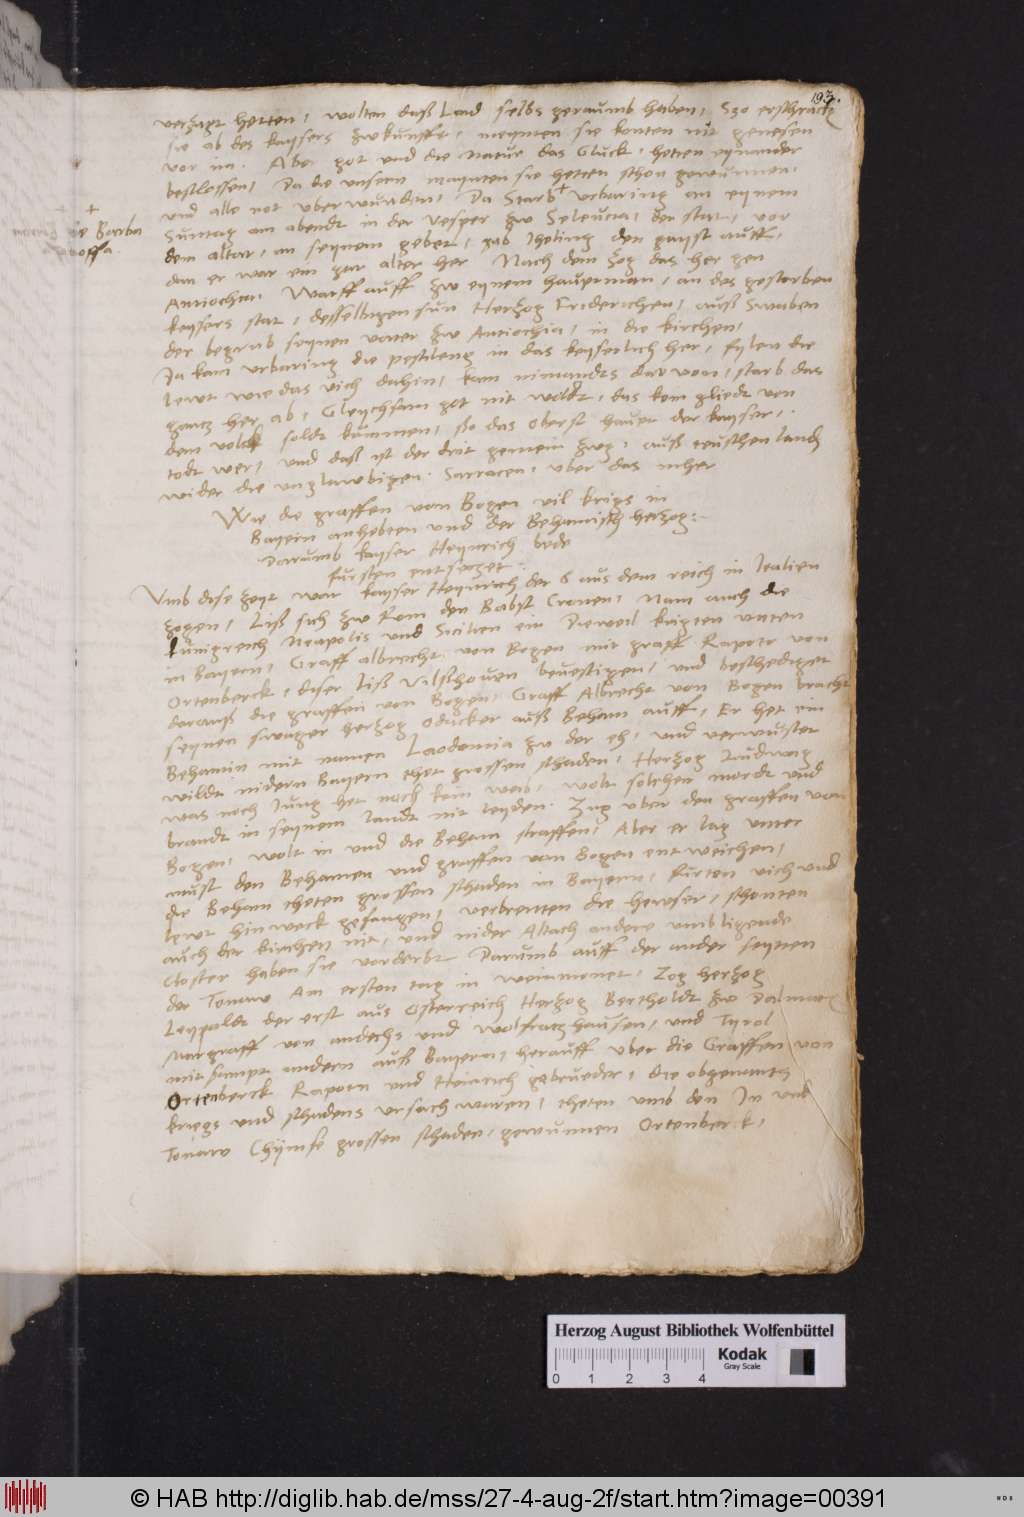 193.
verzagt hetten, wolten daß Land selbs geraumb haben, Szo erschrackh
sie ab des kaysers zwkunfft, meynten sie konten nit genesen
vor im. Aber got und die Natur das Gluck, hetten eynander
beslossen, Da die unsern maynten sie hetten schon gewunnen,
und alle not uberwunden, Da Starb + urbaring an eynem
Suntag am abendt in der Vesper zw Seleucia, der stat, vor
dem altar, an seynem gebet, gab Iheling den gayst auff,
dan er war ein gar alter her Nach dem zog das her gen
Antiochia, Warff auff zw eynem hauerman, an des gestorben
keysers stat, desselbigen sun Herzog Friderichen, auß Swaben
der begrub seynen vater zw Antiochia, in die kirchen,
Ja kam urbaring die pestilentz in das keyserlich her, fylen die
lewt wie das vich dahin, kam nimandts dar von, starb das
gantz her ab, Gleychsam got nit woldt, das kein gliedt von
dem volck soldt kummen, ßo das oberst hauet der kayser,
todt wer, und daß ist der drit gemein zwg, auß teutschen landt
wider die unglawbigen. Sarracen, uber das mher
+
Barba
rossa.
Wie die graffen vom Bogen vil krigs in
Bayern anhebten und der Behamisch herzog.
Darumb kayser Heynrich bede
fursten entsatzet.
Umb dise zeyt war kayser Heynrich der 6 aus dem reich in Italien
zogen, Liß sich zw Rom den Babst Cronen, Nam auch die
kunigreich Neapolis und Sicilien ein Dieweil krigten unten
in Bayern, Graff albrecht von Bogen mit graff Rapoto von
Ortenberck, diser liß Vilßhouen beuestigen, und beschediget
darauß die graffen von Bogen, Graff Albrecht von Bogen bracht
seynen swager herzog Oducker auß Beham auff, Er het ein
Behamin mit namen Laodomia zw der eh, und verwustet
wildt nidern Bayern thet grossen schaden, Herzog Ludwig
was noch Jung het noch kein weib, wolt solchen mordt und
brandt in seynem landt nit leyden. Zug uber den graffen von
Bogen, wolt in und die Beham straffen, Aber er lag unter
must den Behamen und graffen von Bogen entweichen,
die Beham theten grossen schaden in Bayern, furten vich und
lewt hinweck gefangen, verbrenten die hewser, schonten
auch der kirchen nit, und nider Altach andere umbligende
closter haben sie verderbt Darumb auff der ander seyten
der Tonaw Am ersten tag in weinmonet, Zog herzog
Leypoldt der erst aus Osterreich Herzog Bertholdt zw Dalmatz
Margraff von andechs und wolfratzhausen, und Tyrol
mit sampt andern auß Bayern, herauff uber die Graffen von
Ortenberck Rapoten und Heinrich gebrueder, die obgenants
kriegs und schadens ursach waren, theten umb den In und
Tonaw Chymse grossen schaden, gewunnen Ortenberck,
Herzog August Bibliothek Wolfenbüttel
Kodak
Gray Scale
0 1 2 3 4
© HAB http://diglib.hab.de/mss/27-4-aug-2f/start.htm?image=00391